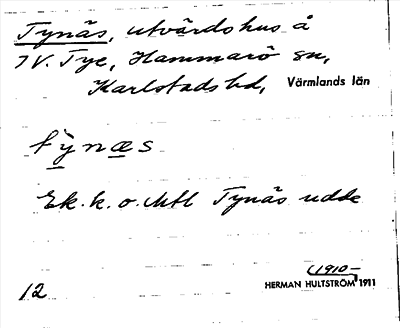 Tynäs, utvärdshus å
IV. Tye, Hammarö sn,
Karlstads hd, Värmlands län
tỳnæs
Ek. k. o. Mtl Tynäs udde
(1910–
HERMAN HULTSTRÖM, 1911
12